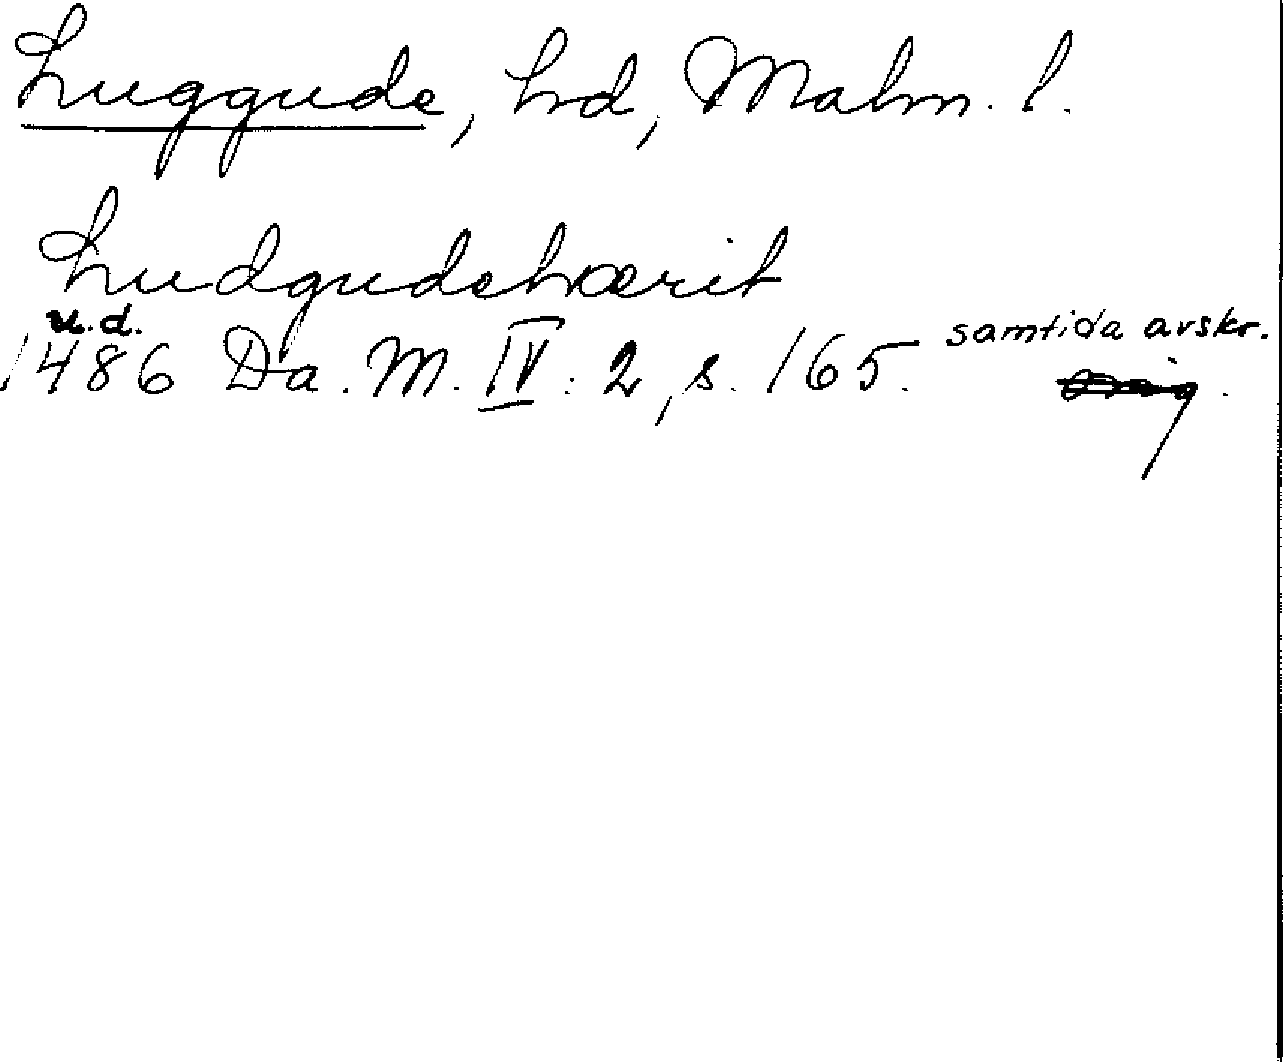 Luggude, hd, Malm. l.
Ludgudehærit
u.d.
1486 Da. M. IV: 2, s. 165. samtida avskr.